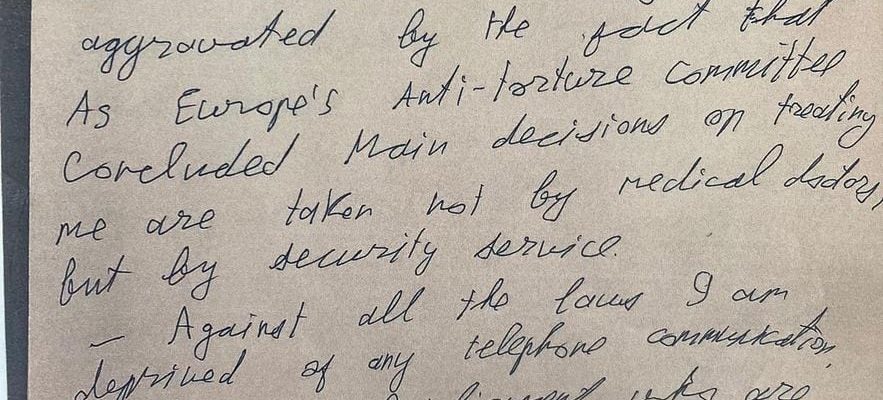 aggravated by the fact that
As Europe's Anti-torture committee
Concluded Main decisions on treating
me are taken not by medical doctors,
but by security service.
– Against all the laws I am
deprived of any telephone communication.
are